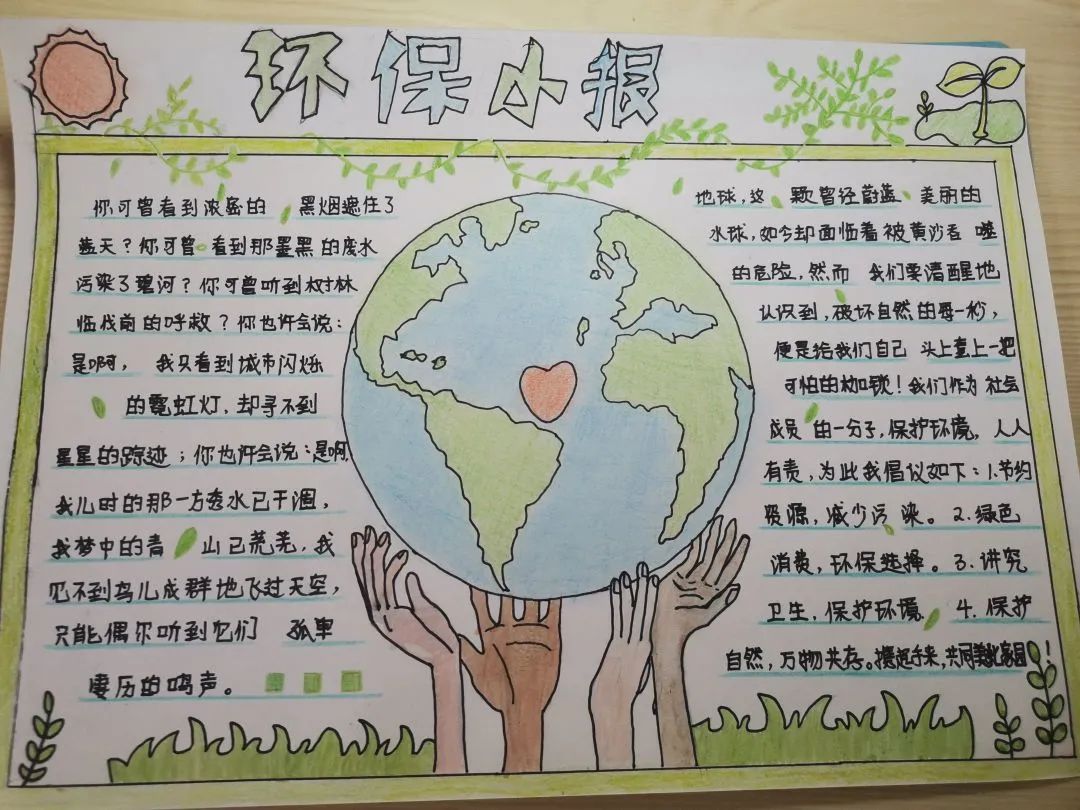 环保小报
你可曾看到浓密的 黑烟遮住了
蓝天？你可曾看到那墨黑的废水
污染了碧河？你可曾听到树林
临伐前的呼救？你也许会说：
是啊， 我只看到城市闪烁
的霓虹灯，却寻不到
星星的踪迹；你也许会说：是啊，
我儿时的那一方秀水已干涸，
我梦中的青 山已荒芜，我
见不到鸟儿成群地飞过天空，
只能偶尔听到它们 孤单
凄历的鸣声。
地球，这 颗曾经蔚蓝、美丽的
水球，如今却面临着被黄沙吞 噬
的危险，然而 我们要清醒地
认识到，破坏自然的每一秒，
便是给我们自己 头上套上一把
可怕的枷锁！我们作为 社会
成员 的一分子，保护环境，人人
有责，为此我倡议如下：1.节约
资源，减少污 染。2.绿色
消费，环保选择。3.讲究
卫生，保护环境。4.保护
自然，万物共存。携起手来，共同美化家园！